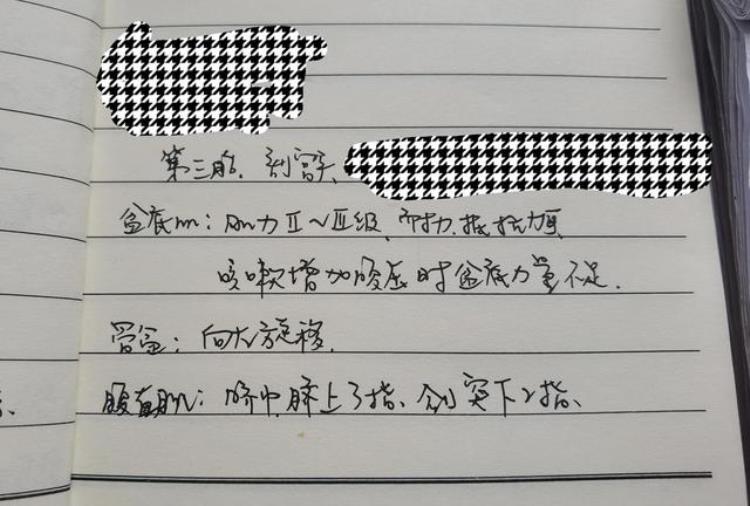 第三胎、剖宫产
盆底肌:肌力Ⅱ~Ⅲ级、耐力、抵抗力
咳嗽增加腹压时盆底力量不足.
骨盆:向左旋移.
腹直肌:脐中、脐上3指、剑突下2指、